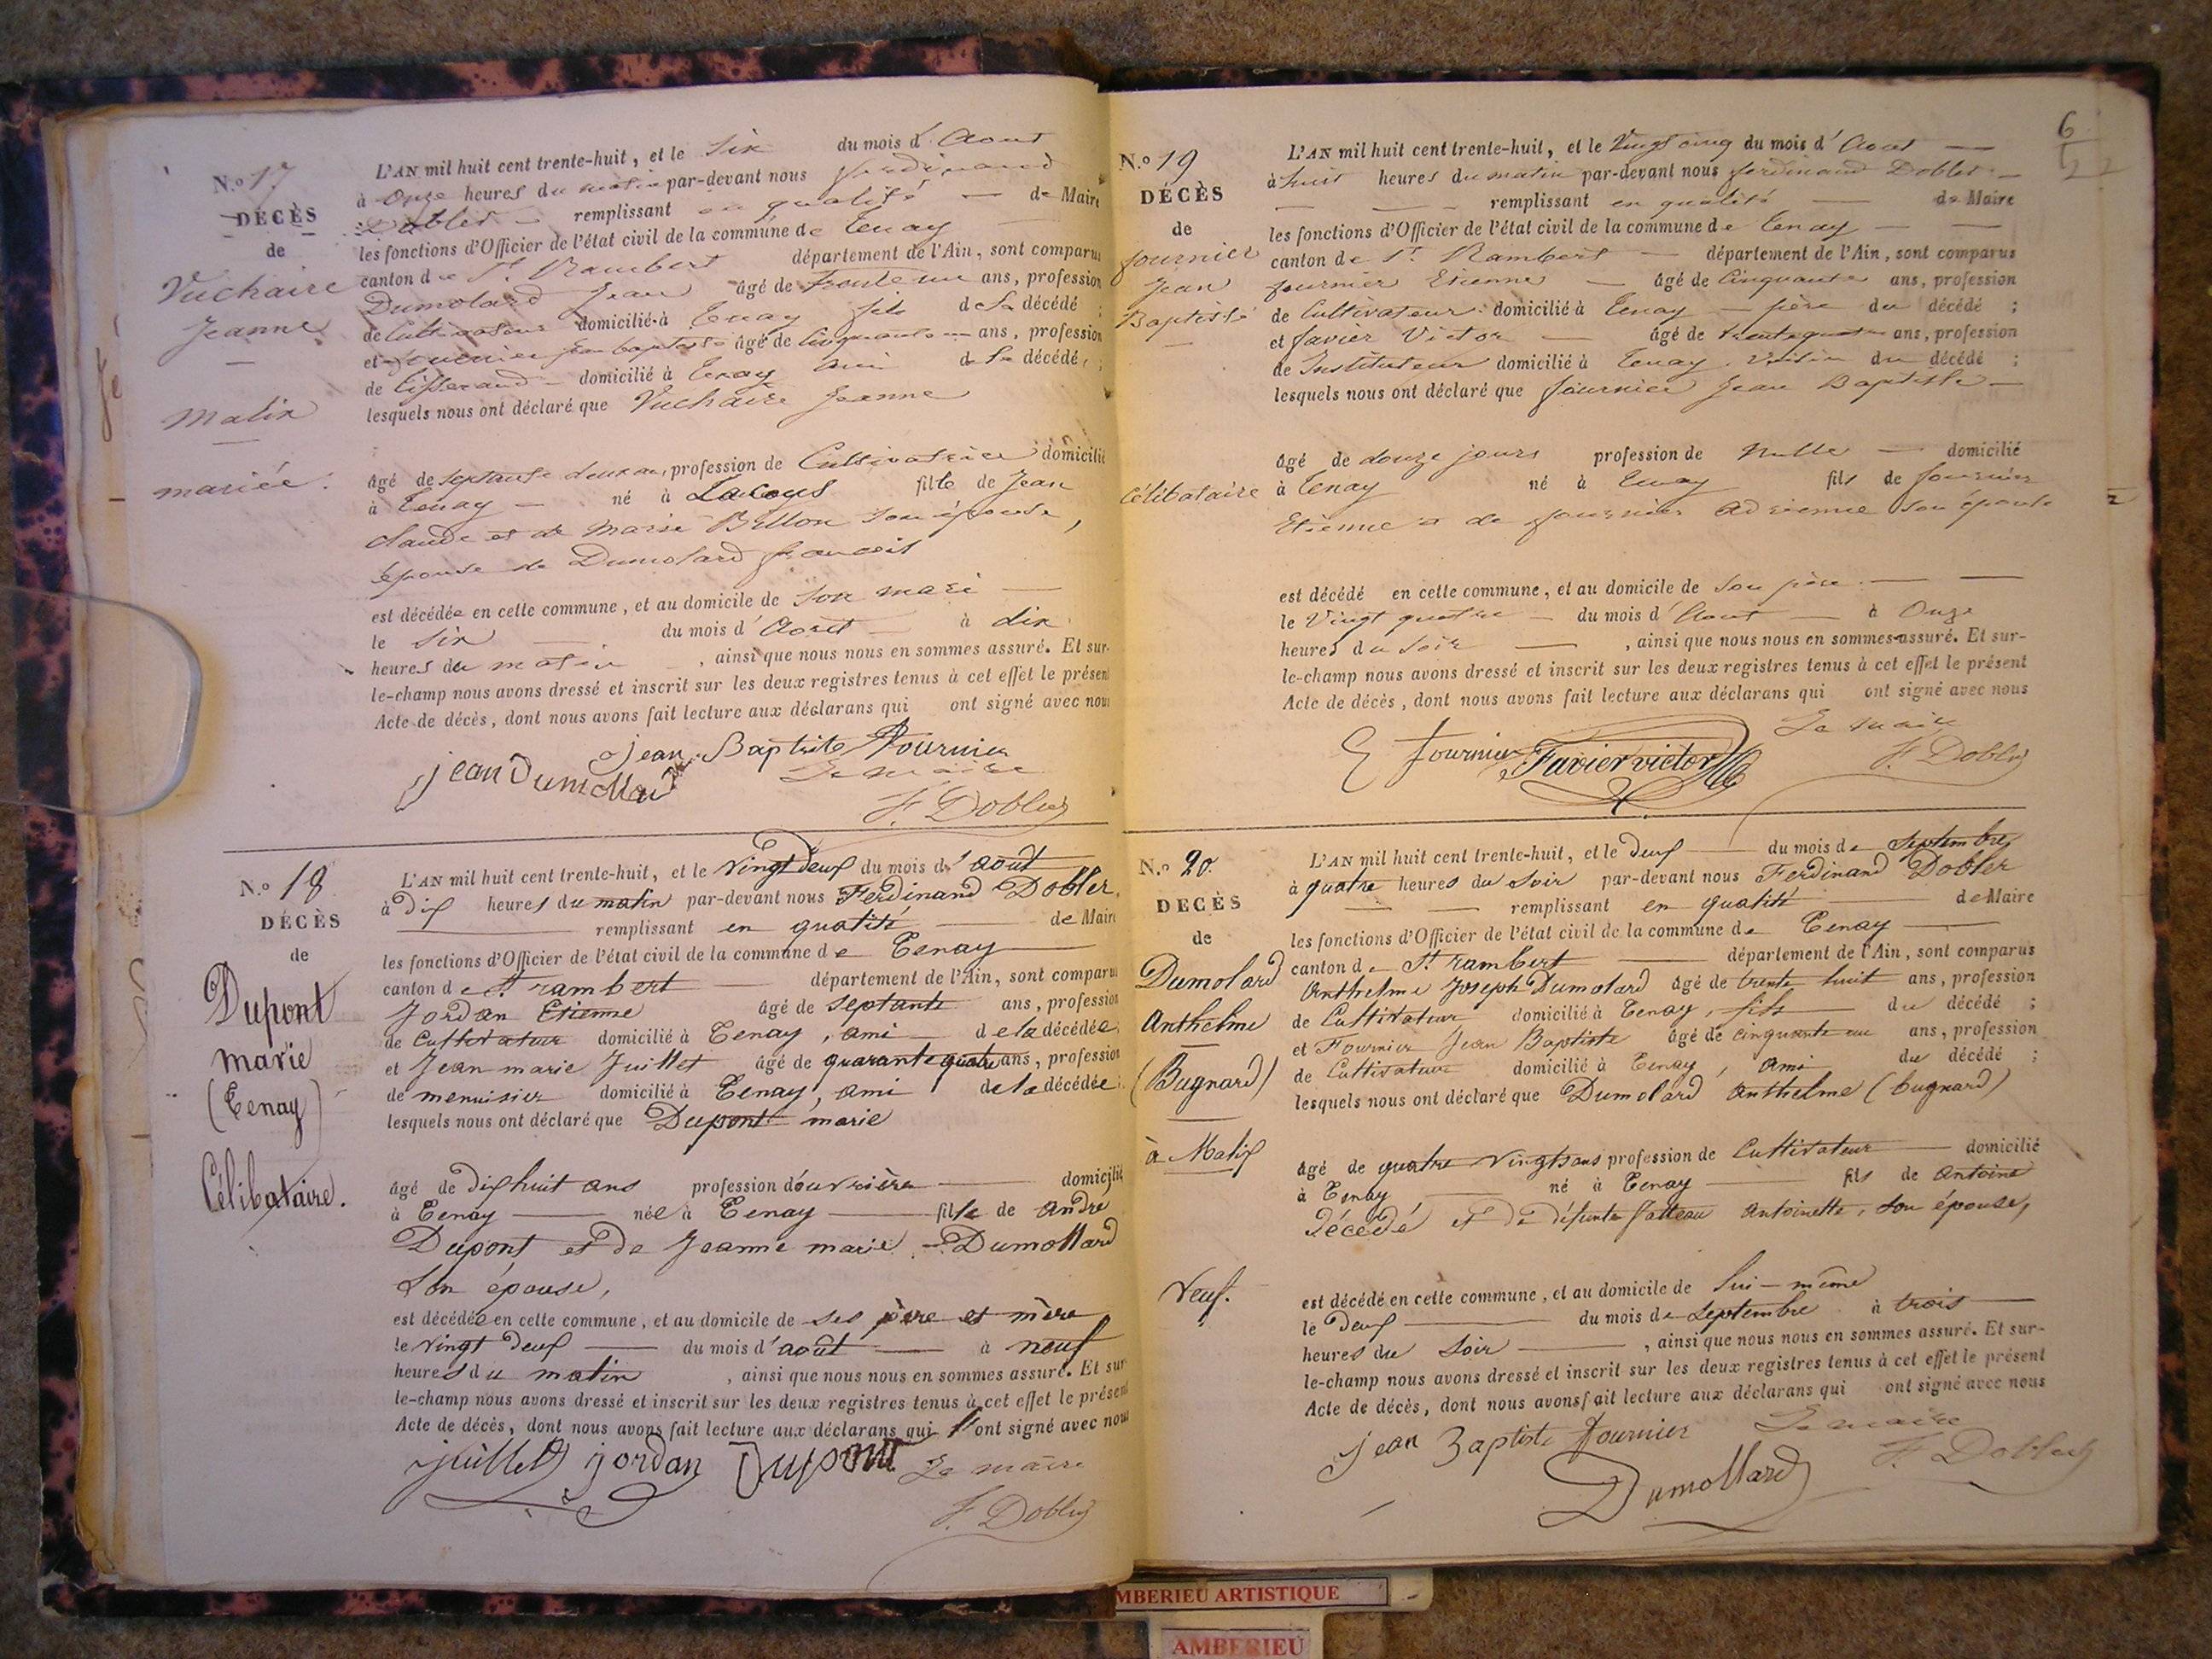 N.o 17
DÉCÈS
de
Vuchaire
Jeanne
Malix
mariée.
L'AN mil huit cent trente-huit, et le Six du mois d'Aout
à Onze heures du matin par-devant nous ferdinand
Dobler remplissant en qualité de Maire
les fonctions d'Officier de l'état civil de la commune de Tenay
canton de St. Rambert département de l'Ain, sont comparus
Dumolard Jean âgé de trente un ans, profession
de Cultivateur domicilié à Tenay fils de La décédé ;
et fournier jean baptiste âgé de cinquante ans, profession
de tisserand domicilié à Tenay ami de la décédé, ;
lesquels nous ont déclaré que Vuchaire Jeanne
âgé de septante deux ans, profession de Cultivatrice domicilié
à Tenay né à fille de Jean
claude et de Marie Billon son épouse,
épouse de Dumolard francois
est décédée en cette commune, et au domicile de son mari
le Six du mois d'Aout à dix
heures du matin , ainsi que nous nous en sommes assuré. Et sur-
le-champ nous avons dressé et inscrit sur les deux registres tenus à cet effet le présent
Acte de décès, dont nous avons fait lecture aux déclarans qui ont signé avec nous
jean Baptiste fournier
jean Dumollard Le maire
F. Dobler
N.o 18
DÉCÈS
de
Dupont
marie
(Tenay)
Célibataire.
L'AN mil huit cent trente-huit, et le vingt Deux du mois d'août
à Dix heures du matin par-devant nous Ferdinand Dobler,
remplissant en qualité de Maire
les fonctions d'Officier de l'état civil de la commune de Tenay
canton de St. rambert département de l'Ain, sont comparus
Jordan Etienne âgé de septante ans, profession
de Cultivateur domicilié à Tenay, ami de la décédée;
et Jean marie Juillet âgé de quarante quatre ans, profession
de menuisier domicilié à Tenay, ami de la décédée;
lesquels nous ont déclaré que Dupont marie
âgé de dix huit ans profession d'ouvrière domicilié
à Tenay née à Tenay fille de André
Dupont et de Jeanne marie Dumollard
son épouse,
est décédée en cette commune, et au domicile de ses père et mère
le vingt Deux du mois d'août à neuf
heures du matin , ainsi que nous nous en sommes assuré. Et sur-
le-champ nous avons dressé et inscrit sur les deux registres tenus à cet effet le présent
Acte de décès, dont nous avons fait lecture aux déclarans qui ont signé avec nous
juillet jordan Dupont Le maire
F. Dobler
6
N.o 19
DÉCÈS
de
fournier
Jean
Baptiste
Célibataire
L'AN mil huit cent trente-huit, et le Vingt cinq du mois d'Aout
à huit heures du matin par-devant nous ferdinand Dobler
remplissant en qualité de Maire
les fonctions d'Officier de l'état civil de la commune de Tenay
canton de St. Rambert département de l'Ain, sont comparus
fournier Etienne âgé de Cinquante ans, profession
de Cultivateur domicilié à Tenay père du décédé ;
et favier Victor âgé de trente quatre ans, profession
de Instituteur domicilié à Tenay voisin du décédé ;
lesquels nous ont déclaré que fournier Jean Baptiste
âgé de douze jours profession de Nulle domicilié
à Tenay né à Tenay fils de fournier
Etienne et de fournier Adrienne son épouse
est décédé en cette commune, et au domicile de son père
le Vingt quatre du mois d'Aout à Onze
heures du soir , ainsi que nous nous en sommes assuré. Et sur-
le-champ nous avons dressé et inscrit sur les deux registres tenus à cet effet le présent
Acte de décès, dont nous avons fait lecture aux déclarans qui ont signé avec nous
Le maire
E fournier Favier victor F. Dobler
N.o 20.
DÉCÈS
de
Dumolard
Anthelme
(Bugnard)
à Malix
Veuf.
L'AN mil huit cent trente-huit, et le Deux du mois de Septembre
à quatre heures du soir par-devant nous Ferdinand Dobler
remplissant en qualité de Maire
les fonctions d'Officier de l'état civil de la commune de Tenay
canton de St. rambert département de l'Ain, sont comparus
Anthelme Joseph Dumolard âgé de trente huit ans, profession
de Cultivateur domicilié à Tenay, fils du décédé ;
et Fournier Jean Baptiste âgé de cinquante un ans, profession
de Cultivateur domicilié à Tenay, ami du décédé ;
lesquels nous ont déclaré que Dumolard Anthelme (bugnard)
âgé de quatre vingts ans profession de Cultivateur domicilié
à Tenay né à Tenay fils de Antoine
Décédé et de défunte Antoinette, son épouse,
est décédé en cette commune, et au domicile de lui-même
le Deux du mois de Septembre à trois
heures du soir , ainsi que nous nous en sommes assuré. Et sur-
le-champ nous avons dressé et inscrit sur les deux registres tenus à cet effet le présent
Acte de décès, dont nous avons fait lecture aux déclarans qui ont signé avec nous
jean Baptiste fournier Le maire
Dumollard F. Dobler
AMBERIEU ARTISTIQUE
AMBERIEU